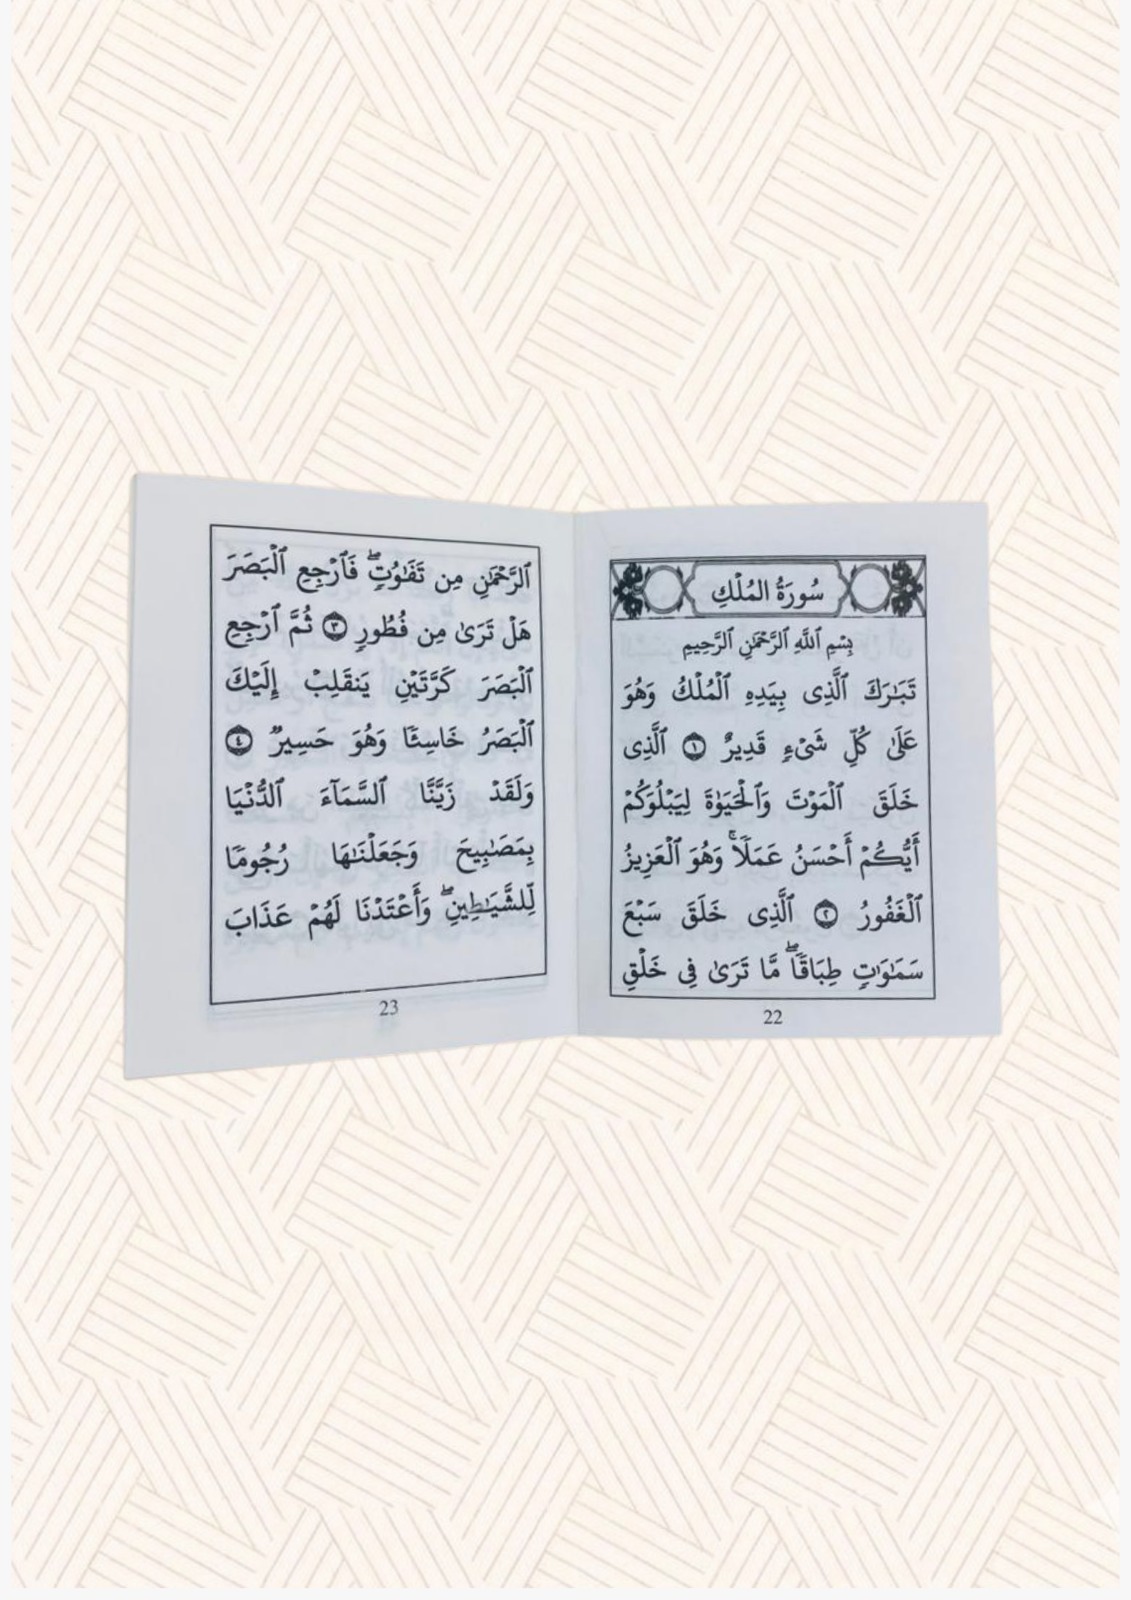 سُورَةُ المُلْكِ
بِسْمِ ٱللَّهِ ٱلرَّحْمَٰنِ ٱلرَّحِيمِ
تَبَٰرَكَ ٱلَّذِى بِيَدِهِ ٱلْمُلْكُ وَهُوَ
عَلَىٰ كُلِّ شَىْءٍ قَدِيرٌ ١ ٱلَّذِى
خَلَقَ ٱلْمَوْتَ وَٱلْحَيَوٰةَ لِيَبْلُوَكُمْ
أَيُّكُمْ أَحْسَنُ عَمَلًا ۚ وَهُوَ ٱلْعَزِيزُ
ٱلْغَفُورُ ٢ ٱلَّذِى خَلَقَ سَبْعَ
سَمَٰوَٰتٍ طِبَاقًا ۖ مَّا تَرَىٰ فِى خَلْقِ
22
ٱلرَّحْمَٰنِ مِن تَفَٰوُتٍ ۖ فَٱرْجِعِ ٱلْبَصَرَ
هَلْ تَرَىٰ مِن فُطُورٍ ٣ ثُمَّ ٱرْجِعِ
ٱلْبَصَرَ كَرَّتَيْنِ يَنقَلِبْ إِلَيْكَ
ٱلْبَصَرُ خَاسِئًا وَهُوَ حَسِيرٌ ٤
وَلَقَدْ زَيَّنَّا ٱلسَّمَآءَ ٱلدُّنْيَا
بِمَصَٰبِيحَ وَجَعَلْنَٰهَا رُجُومًا
لِّلشَّيَٰطِينِ ۖ وَأَعْتَدْنَا لَهُمْ عَذَابَ
23